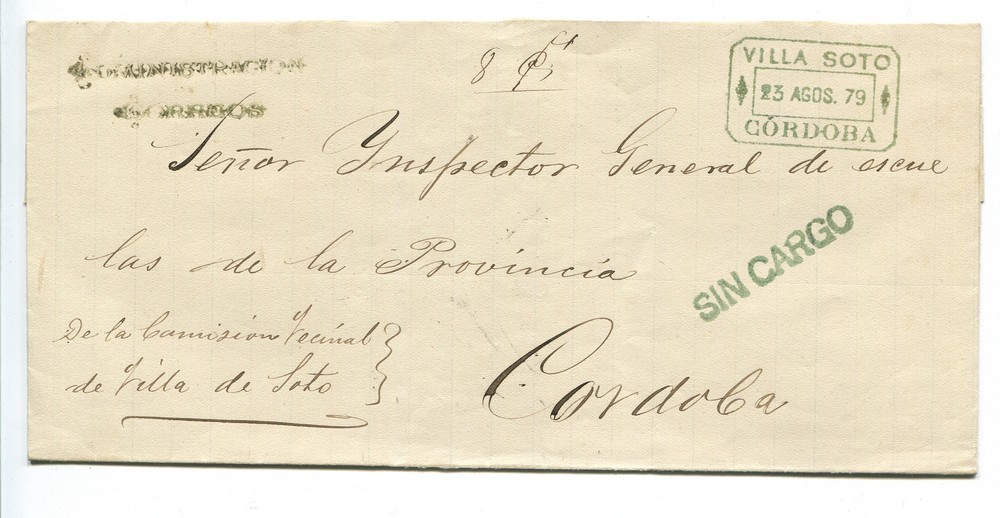 CORREOS
VILLA SOTO
23 AGOS. 79
CÓRDOBA
Señor Ynspector General de escue
las de la Provincia
SIN CARGO
De la Comisión Vecinal
de Villa de Soto
Cordoba